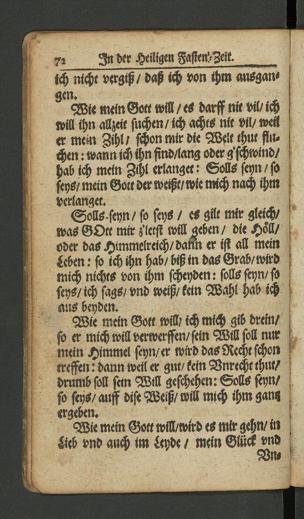 72 In der Heiligen Fasten-Zeit.
ich nicht vergiß / daß ich von ihm ausgan-
gen.
Wie mein Gott will / es darff nit vil / ich
will ihn allzeit suchen / ich achts nit vil / weil
er mein Zihl / schon mir die Welt thut flu-
chen : wann ich ihn find / lang oder g'schwind /
hab ich mein Zihl erlanget : Solls seyn / so
seys / mein Gott der weißt / wie mich nach ihm
verlanget.
Solls seyn / so seys / es gilt mir gleich /
was GOtt mir z'letst will geben / die Höll /
oder das Himmelreich / dann er ist all mein
Leben : so ich ihn hab / biß in das Grab / wird
mich nichts von ihm scheyden : solls seyn / so
seys / ich sags / vnd weiß / kein Wahl hab ich
aus beyden.
Wie mein Gott will / ich mich gib drein /
so er mich will verwerffen / sein Will soll nur
mein Himmel seyn / er wird das Recht schon
treffen : dann weil er gut / kein Vnrecht thut /
drumb soll sein Will geschehen : Solls seyn /
so seys / auff dise Weiß / will mich ihm gantz
ergeben.
Wie mein Gott will / wird es mir gehn / in
Lieb vnd auch im Leyde / mein Glück vnd
Vn-